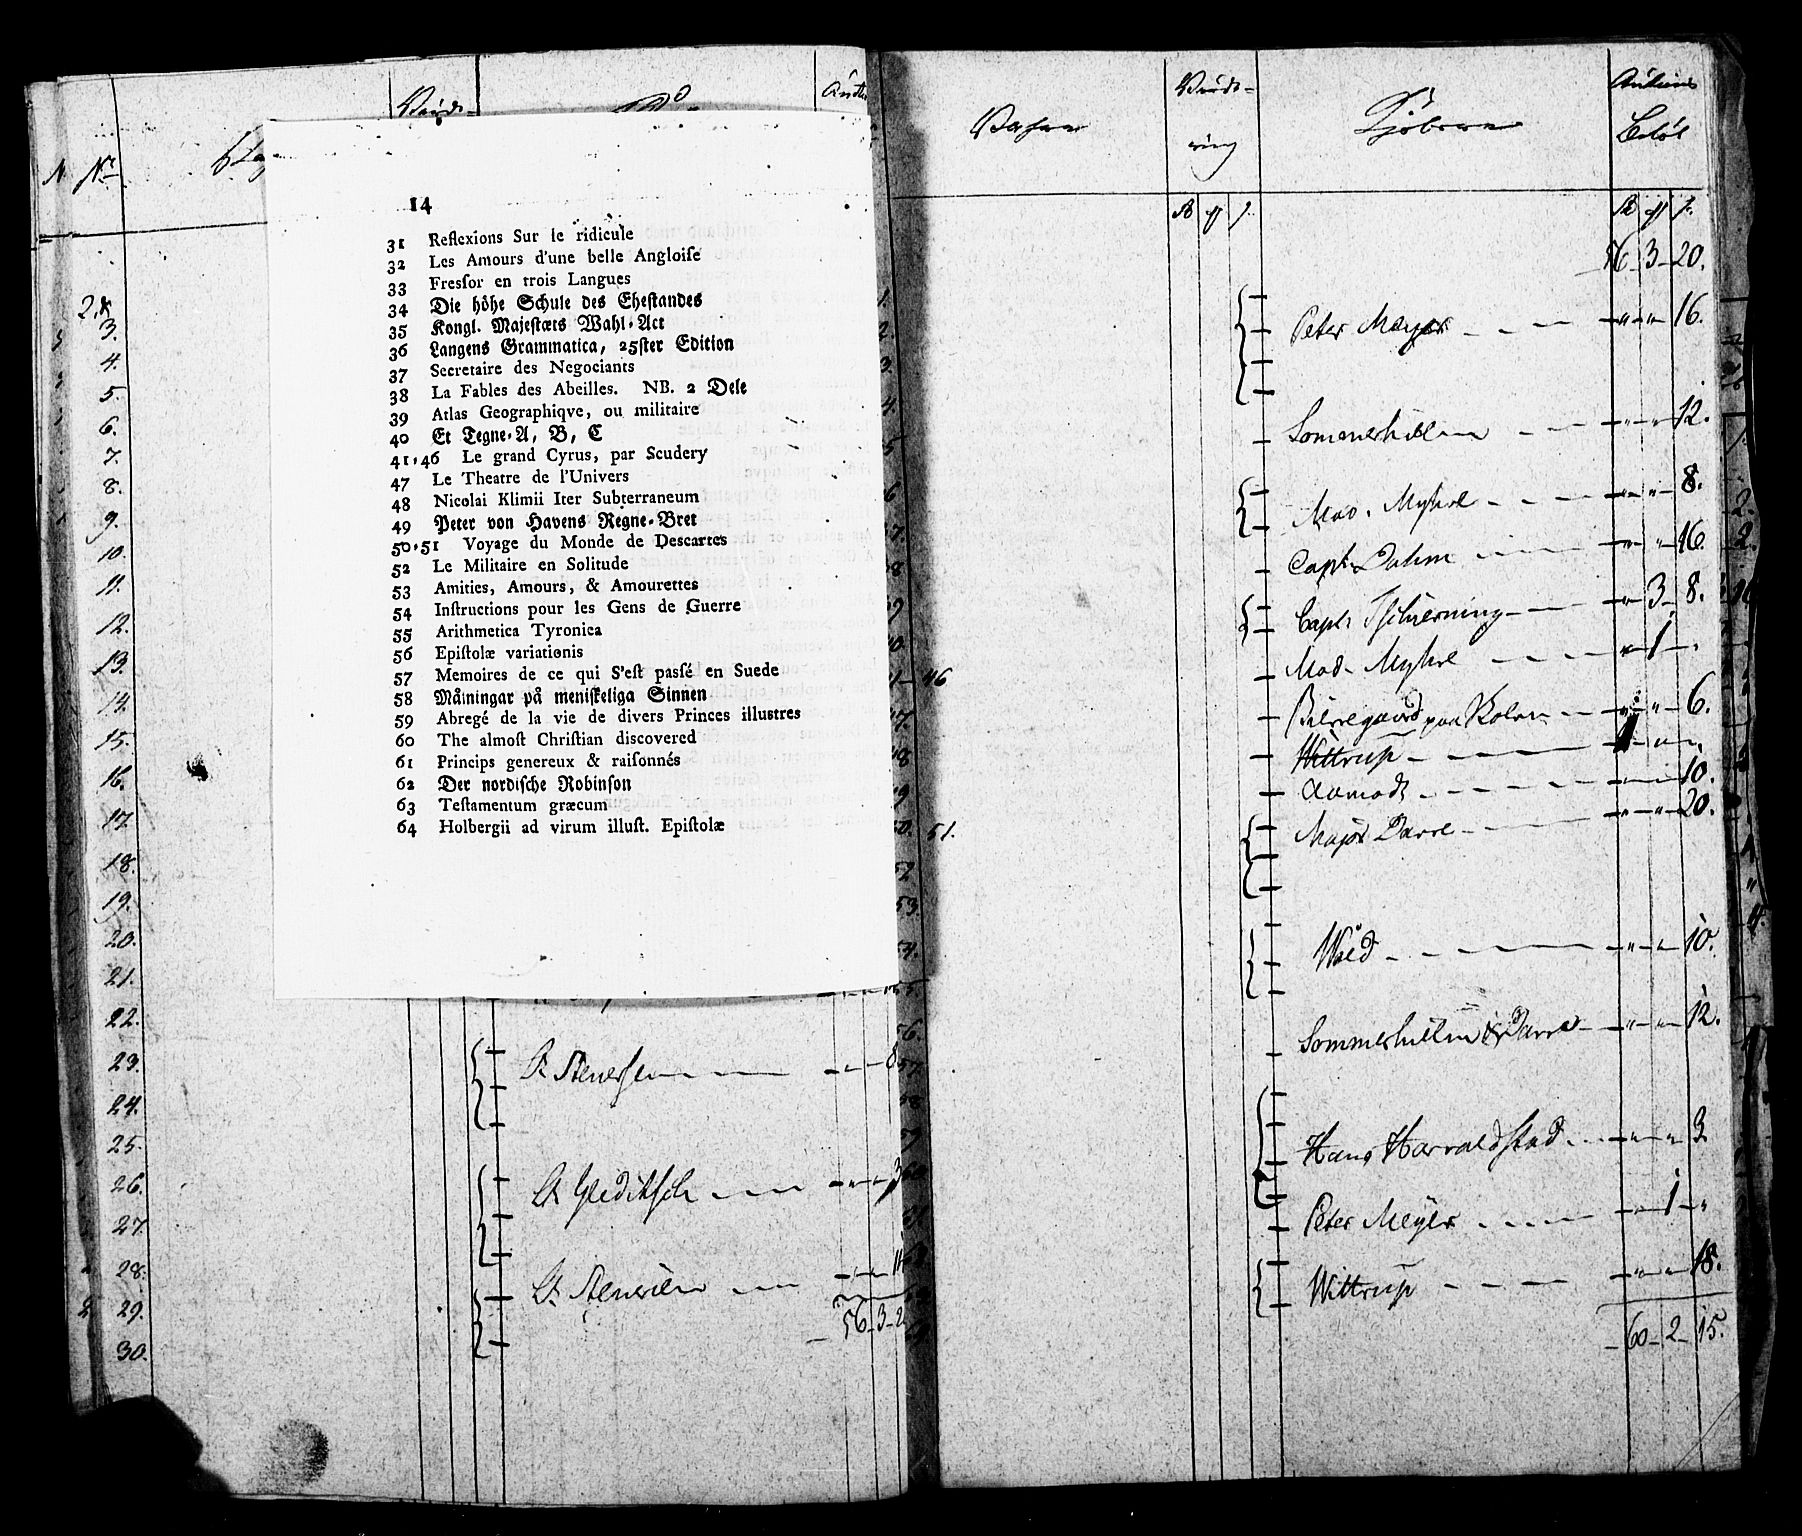 14
31 Reflexions Sur le ridicule
32 Les Amours d'une belle Angloise
33 Fresfor en trois Langues
34 Die höhe Schule des Ehestandes
35 Kongl. Majestæts Wahl-Act
36 Langens Grammatica, 25ster Edition
37 Secretaire des Negociants
38 La Fables des Abeilles. NB. 2 Dele
39 Atlas Geographiqve, ou militaire
40 Et Tegne-A, B, C
41-46 Le grand Cyrus, par Scudery
47 Le Theatre de l'Univers
48 Nicolai Klimii Iter Subterraneum
49 Peter von Havens Regne-Bret
50-51 Voyage du Monde de Descartes
52 Le Militaire en Solitude
53 Amities, Amours, & Amourettes
54 Instructions pour les Gens de Guerre
55 Arithmetica Tyronica
56 Epistolæ variationis
57 Memoires de ce qui S'est passé en Suede
58 Målningar på menskeliga Sinnen
59 Abregé de la vie de divers Princes illustres
60 The almost Christian discovered
61 Princips genereux & raisonnés
62 Der nordische Robinson
63 Testamentum græcum
64 Holbergii ad virum illust. Epistolæ
No.
3.
4.
5.
6.
7.
8.
9.
10.
11.
12.
13.
14.
15.
16.
17.
18.
19.
20.
21.
22.
23. St. Stenersen 8
24.
25.
26. Gleditsch 3
27.
28. St. Stenersen
29. 56 3
30.
Kjøberne
Beløb
3 20.
Peter Meyer 16.
Sommerhielm 12.
Mad. Myhre 8.
Capt. Dahm 16.
Capt. Tschierning 3 8.
46 Mad. Myhre 1
Bierregaard paa Kolen 6.
Wittrup
Aamodt 10.
51. Major Darre 20.
Wold 10.
Sommerhielm & Darre 12.
Hans Harraldstad 3
Peter Meyer 1
Wittrup 18.
60 2 15.